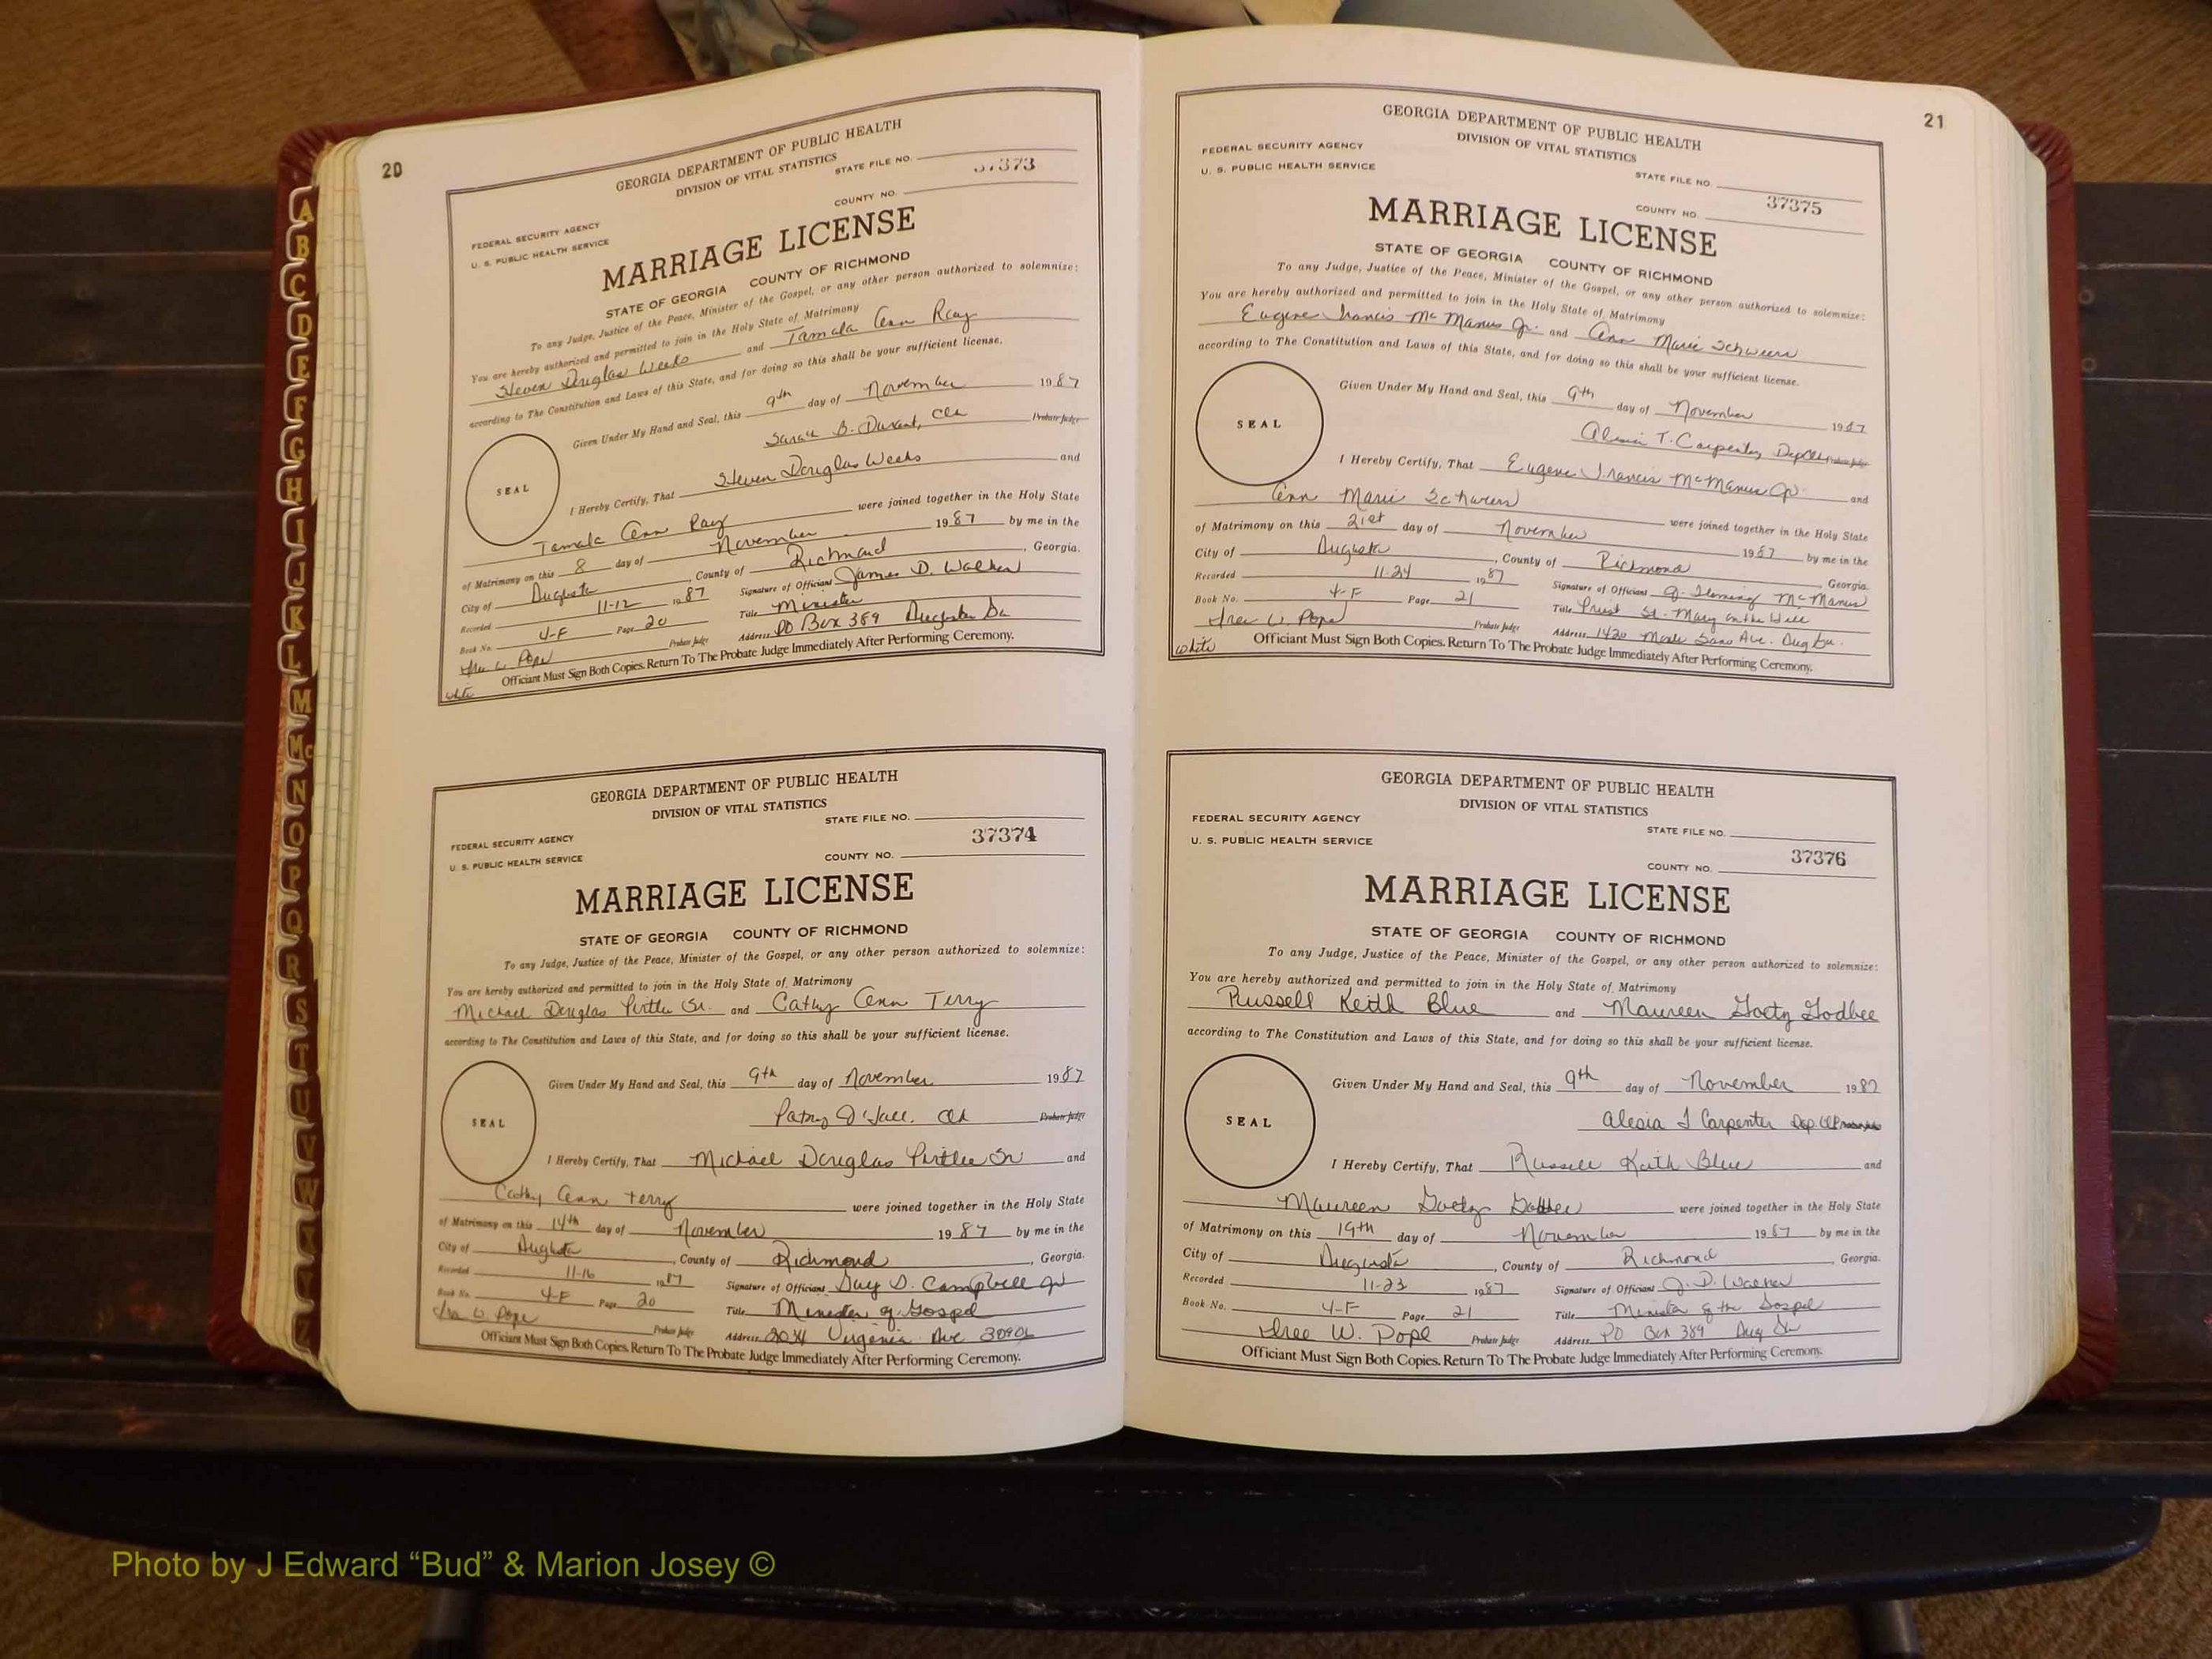 20
GEORGIA DEPARTMENT OF PUBLIC HEALTH
DIVISION OF VITAL STATISTICS
STATE FILE NO.
37373
COUNTY NO.
FEDERAL SECURITY AGENCY
U. S. PUBLIC HEALTH SERVICE
MARRIAGE LICENSE
STATE OF GEORGIA COUNTY OF RICHMOND
To any Judge, Justice of the Peace, Minister of the Gospel, or any other person authorized to solemnize:
You are hereby authorized and permitted to join in the Holy State of Matrimony
Steven Douglas Weeks and Tamala Ann Ray
according to The Constitution and Laws of this State, and for doing so this shall be your sufficient license.
Given Under My Hand and Seal, this 9th day of November 1987
Sarah B. Durant, Clk Probate Judge
SEAL
I Hereby Certify, That Steven Douglas Weeks and
Tamala Ann Ray were joined together in the Holy State
of Matrimony on this 8 day of November 1987 by me in the
City of Augusta, County of Richmond, Georgia.
Recorded 11-12 1987 Signature of Officiant James D. Walker
Book No. 4-F Page 20 Title Minister
Probate Judge Address PO Box 389 Augusta Ga
Officiant Must Sign Both Copies. Return To The Probate Judge Immediately After Performing Ceremony.
white
GEORGIA DEPARTMENT OF PUBLIC HEALTH
DIVISION OF VITAL STATISTICS
STATE FILE NO.
37374
COUNTY NO.
FEDERAL SECURITY AGENCY
U. S. PUBLIC HEALTH SERVICE
MARRIAGE LICENSE
STATE OF GEORGIA COUNTY OF RICHMOND
To any Judge, Justice of the Peace, Minister of the Gospel, or any other person authorized to solemnize:
You are hereby authorized and permitted to join in the Holy State of Matrimony
Michael Douglas Pirtle Sr. and Cathy Ann Terry
according to The Constitution and Laws of this State, and for doing so this shall be your sufficient license.
Given Under My Hand and Seal, this 9th day of November 1987
Clk Probate Judge
SEAL
I Hereby Certify, That Michael Douglas Pirtle Sr and
Cathy Ann Terry were joined together in the Holy State
of Matrimony on this 14th day of November 1987 by me in the
City of Augusta, County of Richmond, Georgia.
Recorded 11-16 1987 Signature of Officiant Guy D. Campbell Jr
Book No. 4-F Page 20 Title Minister of Gospel
Probate Judge Address 2034 Virginia Ave 30906
Officiant Must Sign Both Copies. Return To The Probate Judge Immediately After Performing Ceremony.
21
GEORGIA DEPARTMENT OF PUBLIC HEALTH
DIVISION OF VITAL STATISTICS
FEDERAL SECURITY AGENCY
U. S. PUBLIC HEALTH SERVICE
STATE FILE NO.
37375
COUNTY NO.
MARRIAGE LICENSE
STATE OF GEORGIA COUNTY OF RICHMOND
To any Judge, Justice of the Peace, Minister of the Gospel, or any other person authorized to solemnize:
You are hereby authorized and permitted to join in the Holy State of Matrimony
Eugene Francis McManus Jr. and Ann Marie Schweers
according to The Constitution and Laws of this State, and for doing so this shall be your sufficient license.
Given Under My Hand and Seal, this 9th day of November 1987
Alesia T. Carpenter, Dep Clk Probate Judge
SEAL
I Hereby Certify, That Eugene Francis McManus Jr. and
Ann Marie Schweers were joined together in the Holy State
of Matrimony on this 21st day of November 1987 by me in the
City of Augusta, County of Richmond, Georgia.
Recorded 11-24 1987 Signature of Officiant J. Fleming McManus
Book No. 4-F Page 21 Title Priest St. Mary on the Hill
Probate Judge Address 1420 Monte Sano Ave. Aug Ga.
white
Officiant Must Sign Both Copies. Return To The Probate Judge Immediately After Performing Ceremony.
GEORGIA DEPARTMENT OF PUBLIC HEALTH
DIVISION OF VITAL STATISTICS
FEDERAL SECURITY AGENCY
U. S. PUBLIC HEALTH SERVICE
STATE FILE NO.
37376
COUNTY NO.
MARRIAGE LICENSE
STATE OF GEORGIA COUNTY OF RICHMOND
To any Judge, Justice of the Peace, Minister of the Gospel, or any other person authorized to solemnize:
You are hereby authorized and permitted to join in the Holy State of Matrimony
Russell Keith Blue and Maureen Goetz Godbee
according to The Constitution and Laws of this State, and for doing so this shall be your sufficient license.
Given Under My Hand and Seal, this 9th day of November 1987
Alesia T Carpenter Dep. Clk Probate Judge
SEAL
I Hereby Certify, That Russell Keith Blue and
Maureen Goetz Godbee were joined together in the Holy State
of Matrimony on this 19th day of November 1987 by me in the
City of Augusta, County of Richmond, Georgia.
Recorded 11-23 1987 Signature of Officiant J. D. Walker
Book No. 4-F Page 21 Title Minister of the Gospel
W. Pope Probate Judge Address PO Box 389 Aug Ga
Officiant Must Sign Both Copies. Return To The Probate Judge Immediately After Performing Ceremony.
A
B
C
D
E
F
G
H
I
J
K
L
M
Mc
N
O
P
Q
R
S
T
U
V
W
X
Y
Z
Photo by J Edward “Bud” & Marion Josey ©